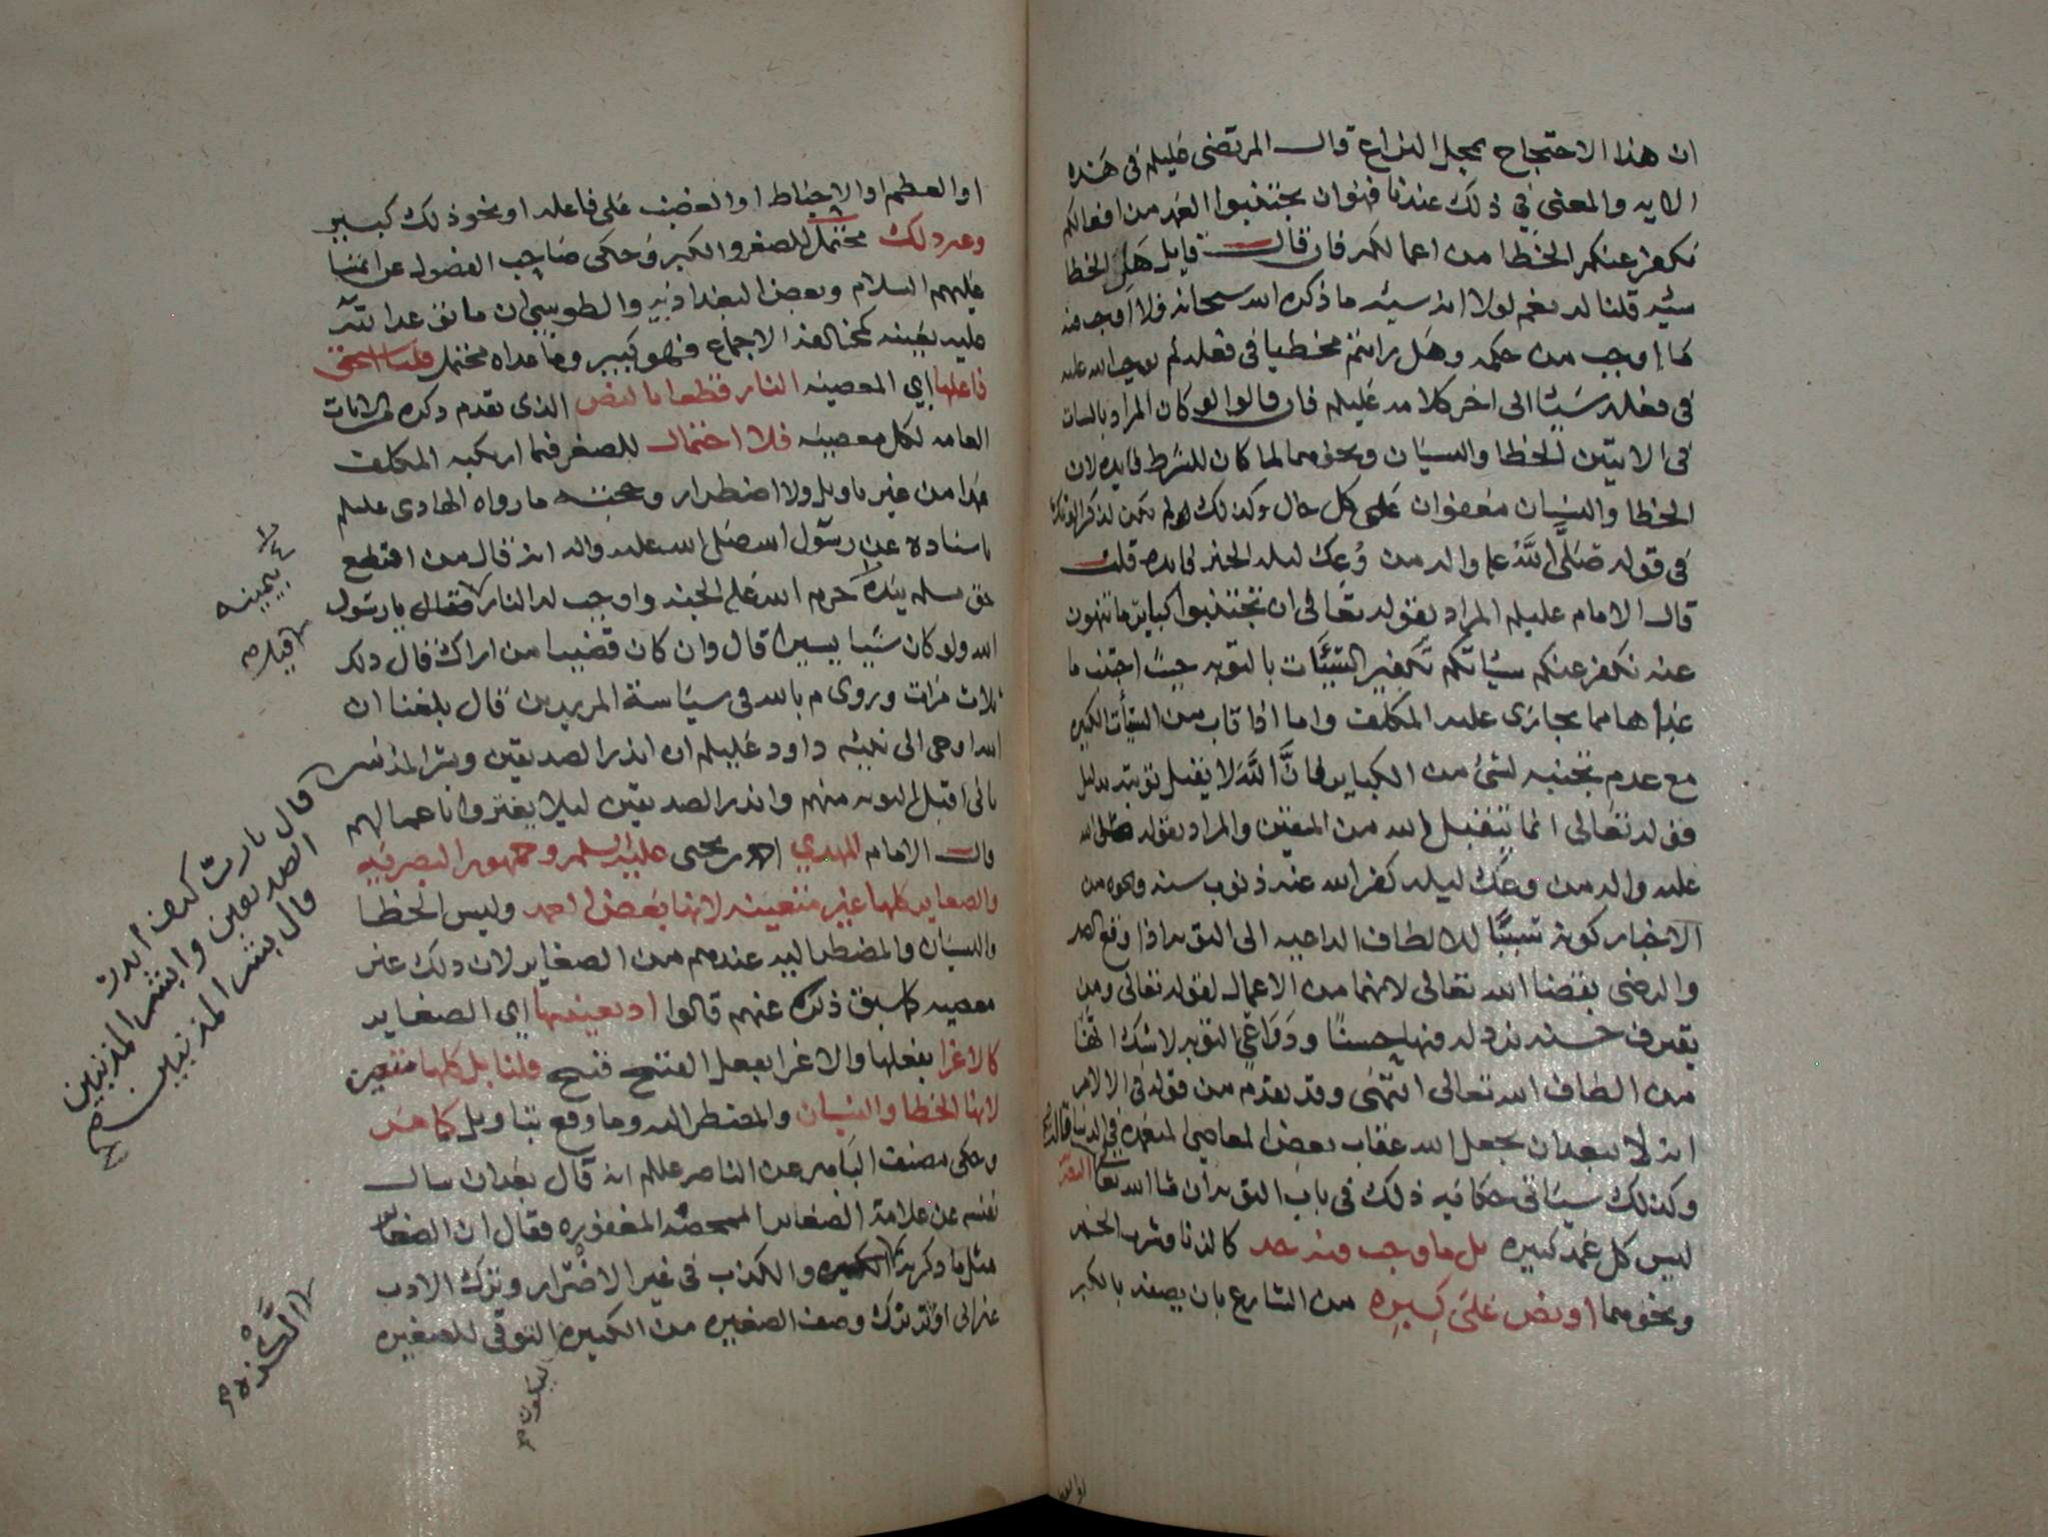 ان هذا الاحتجاج بمحل النزاع قال المرتضى عليلم في هذه
الايه والمعنى في ذلك عندنا فهوان يجتنبوا العمد من افعالكم
نكفر عنكم الخطا من اعمالكم فان قال قايل هل الخطا
سيئه قلنا له نعم لولا انه سيئه ما ذكره الله سبحانه فلا اوجب منه
ما اوجب من حكمه وهل رايتم مخطيا في فعله لم يوجب الله عليه
في فعله سيئا الى اخر كلامه عليلم فان قالوا لو كان المراد بالسيات
في الايتين الخطا والنسيان ونحوهما لما كان للشرط فايده لان
الخطا والنسيان معفوان على كل حال وكذلك لم يكن لذكر التوبة
في قوله صلى الله علم واله من وُعِك ليله الخبر فايده قلت
قال الامام عليلم المراد بقوله تعالى ان تجتنبوا كباير ما تنهون
عنه نكفر عنكم سيئاتكم تكفير السيئات بالتوبه حيث اجتنب ما
عداها مما يجازى عليه المكلف واما اذا تاب من السيئات الكبيره
مع عدم تجنبه لشئ من الكباير فان الله لا يقبل توبته بدليل
قوله تعالى انما يتقبل الله من المتقين والمراد بقوله صلى الله
عليه واله من وعك ليله كفر الله عنه ذنوب سنه ونحوه من
الاخبار كونه تسببًا للالطاف الداعيه الى التوبه اذا وقع الصبر
والرضى بقضا الله تعالى لانهما من الاعمال لقوله تعالى ومن
يقترف حسنه نزد له فيها حسنًا ودواعي التوبه لا شك انها
من الطاف الله تعالى انتهى وقد تقدم من قوله في الالام
انه لا يبعد ان يجعل الله عقاب بعض المعاصي المتعمده في الدنيا
وكذلك سيئاتي حكايه ذلك في باب التوبه ان شا الله تعا
ليس كل عمد كبيره بل ما وجب فيه حد كالزنا وشرب الخمر
ونحوهما او نص على كبيره من الشارع بان يصفه بالكبر
او العظم او الاحباط او الغضب على فاعله او نحو ذلك كبير
وغير ذلك محتمل للصغر والكبر وحكى صاحب الفصول عن ائمتنا
عليهم السلام وبعض البغداذيه والطوسي ان ما توعد الله
عليه بعينه كمخالفة الاجماع فهو كبير وما عداه محتمل قلنا استحق
فاعلها اي المعصيه النار قطعا بالنص الذى تقدم ذكره في الايات
العامه لكل معصيه فلا احتمال للصغر فيما ارتكبه المكلف
عمدا من غير تاويل ولا اضطرار وحجته ما رواه الهادى عليلم
باسناده عن رسول الله صلى الله عليه واله انه قال من اقتطع
حق مسلم بيده حرم الله عليه الجنه واوجب له النار فقال يا رسول
الله ولو كان شيئا يسيرا قال وان كان قضيبا من اراك قال ذلك
ثلاث مرات وروى م بالله في سياسة المريدين قال بلغنا ان
الله اوحى الى نبيئه داود عليلم ان انذر الصديقين وبشر المذنبين
باني اقبل التوبه منهم وانذر الصديقين ليلا يغتروا باعمالهم
قال الامام المهدي احمد بن يحيى عليه السلم وجمهور البصريه
والصغاير كلها غير متعينه لانها بعض العمد وليس الخطا
والنسيان والمضطر اليه عندهم من الصغاير لان ذلك غير
معصيه كما سبق ذكره عنهم قالوا اذ تعيينها اي الصغاير
كالاغرا بفعلها والاغرا بفعل القبيح قبيح قلنا بل كلها متعين
لانها الخطا والنسيان والمضطر اليه وما وقع بتاويل كما مر
وحكى مصنف البامر عن الناصر عليلم انه قال بعد ان سال
نفسه عن علامة الصغاير الممحصه المغفوره فقال ان الصغاير
مثل ما ذكر والكذب في غير الاضرار وترك الادب
غير انى اوثر ترك وصف الصغيره من الكبيره التوقى للصغيره
بيمينه
قيل
قال يارب كيف انذر
الصديقين وابشر المذنبين
قال بشر المذنبين
ليكون